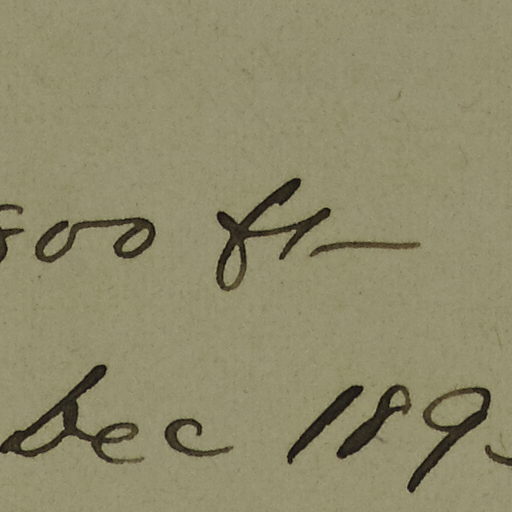 00 ft
Dec 189